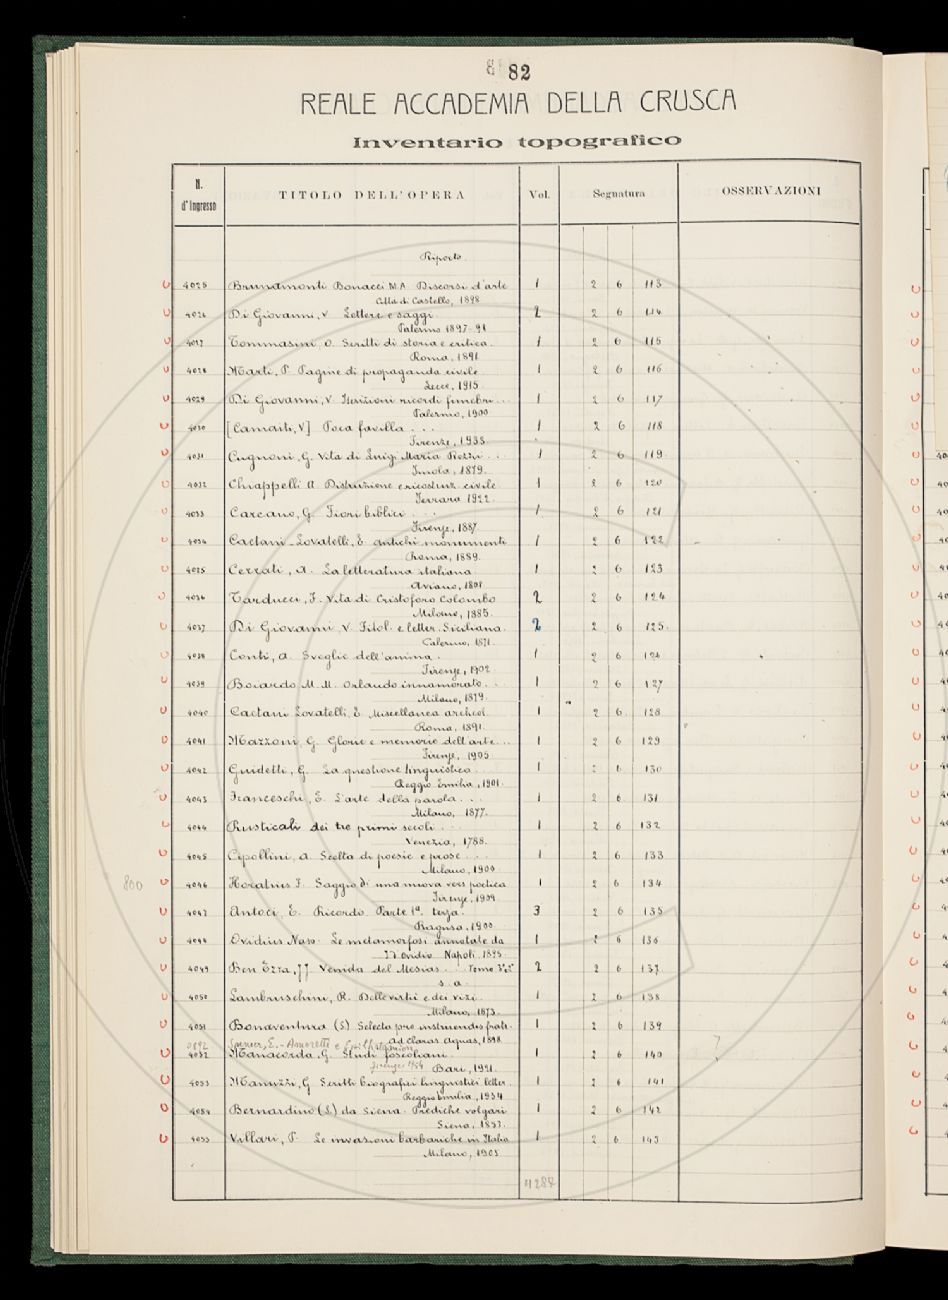 82
REALE ACCADEMIA DELLA CRUSCA
Inventario topografico
N. d'Ingresso TITOLO DELL'OPERA Vol. Segnatura OSSERVAZIONI
Riporto
4025 Brunamonti Bonacci M.A. Discorsi d'arte 1 2 6 113
Città di Castello, 1898
4026 Di Giovanni, V. Lettere e saggi 2 2 6 114
Palermo 1897-98
4027 Tommasini, O. Scritti di storia e critica. 1 2 6 115
Roma, 1891
4028 Marti, P. Pagine di propaganda civile 1 2 6 116
Lecce, 1915
4029 Di Giovanni, V. Iscrizioni ricordi funebri ... 1 2 6 117
Palermo, 1900
4030 [Camaiti, V] Poca favilla ... 1 2 6 118
Firenze, 1933
4031 Cugnoni, G. Vita di Luigi Maria Rezzi ... 1 2 6 119
Imola, 1879.
4032 Chiappelli A. Distruzione e ricostruz. civile 1 2 6 120
Ferrara 1922.
4033 Carcano, G. Fiori biblici ... 1 2 6 121
Firenze, 1887
4034 Caetani-Lovatelli, E. Antichi monumenti 1 2 6 122
Roma, 1889.
4035 Cerrati, A. La letteratura italiana 1 2 6 123
4036 Tarducci, F. Vita di Cristoforo Colombo 2 2 6 124
Milano, 1885.
4037 Di Giovanni, V. Filol. e letter. Siciliana. 2 2 6 125.
Palermo, 1871.
4038 Conti, A. Sveglie dell'anima. 1 2 6 126
Firenze, 1902
4039 Boiardo M. M. Orlando innamorato. .. 1 2 6 127
Milano, 1879.
4040 Caetani Lovatelli, E. Miscellanea archeol. 1 2 6 128
Roma, 1891.
4041 Mazzoni, G. Glorie e memorie dell'arte... 1 2 6 129
Firenze, 1905
4042 Guidetti, G. La questione linguistica 1 2 6 130
Reggio Emilia, 1901.
4043 Franceschi, E. L'arte della parola. .. 1 2 6 131
Milano, 1877.
4044 Rusticali dei tre primi secoli. 1 2 6 132
Venezia, 1788.
4045 Cipollini, A. Scelta di poesie e prose ... 1 2 6 133
Milano, 1900
800 4046 Horatius F. Saggio di una nuova vers poetica 1 2 6 134
Firenze, 1909.
4047 Antoci, E. Ricordo Parte 1ª. terza. 3 2 6 135
Ragusa, 1900
4048 Ovidius Naso. Le metamorfosi annotate da 1 2 6 136
D'Ovidio Napoli 1895.
4049 Ben Ezra, J J Venida del Mesias... Tomo 2 2 6 137
s. a.
4050 Lambruschini, R. Delle virtù e dei vizi. 1 2 6 138
Milano, 1873.
4051 Bonaventura (S) Selecta pro instruendis frat. 1 2 6 139
Ad Claras Aquas, 1898
4052 Manacorda, G. Studi foscoliani. 1 2 6 140
Bari, 1921.
4053 Manuzzi, G Scritti biografici linguistici letter. 1 2 6 141
Reggio Emilia, 1934
4054 Bernardino (S) da Siena. Prediche volgari 1 2 6 142
Siena, 1853.
4055 Villari, P. Le invasioni barbariche in Italia 1 2 6 143
Milano, 1905
4287